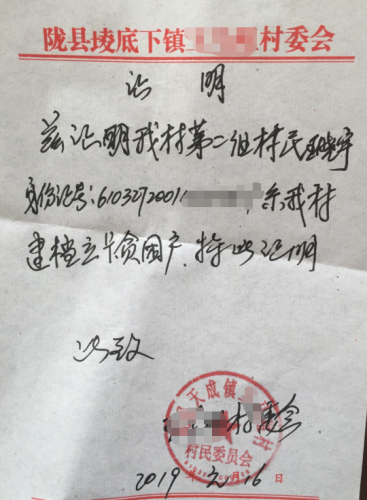 陇县堎底下镇 村委会
证 明
兹证明我村第二组村民
身份证号:610327200 系我村
建档立卡贫困户.特此证明
此致
村委会
天成镇 村
村民委员会
2019 年 2 月 16 日